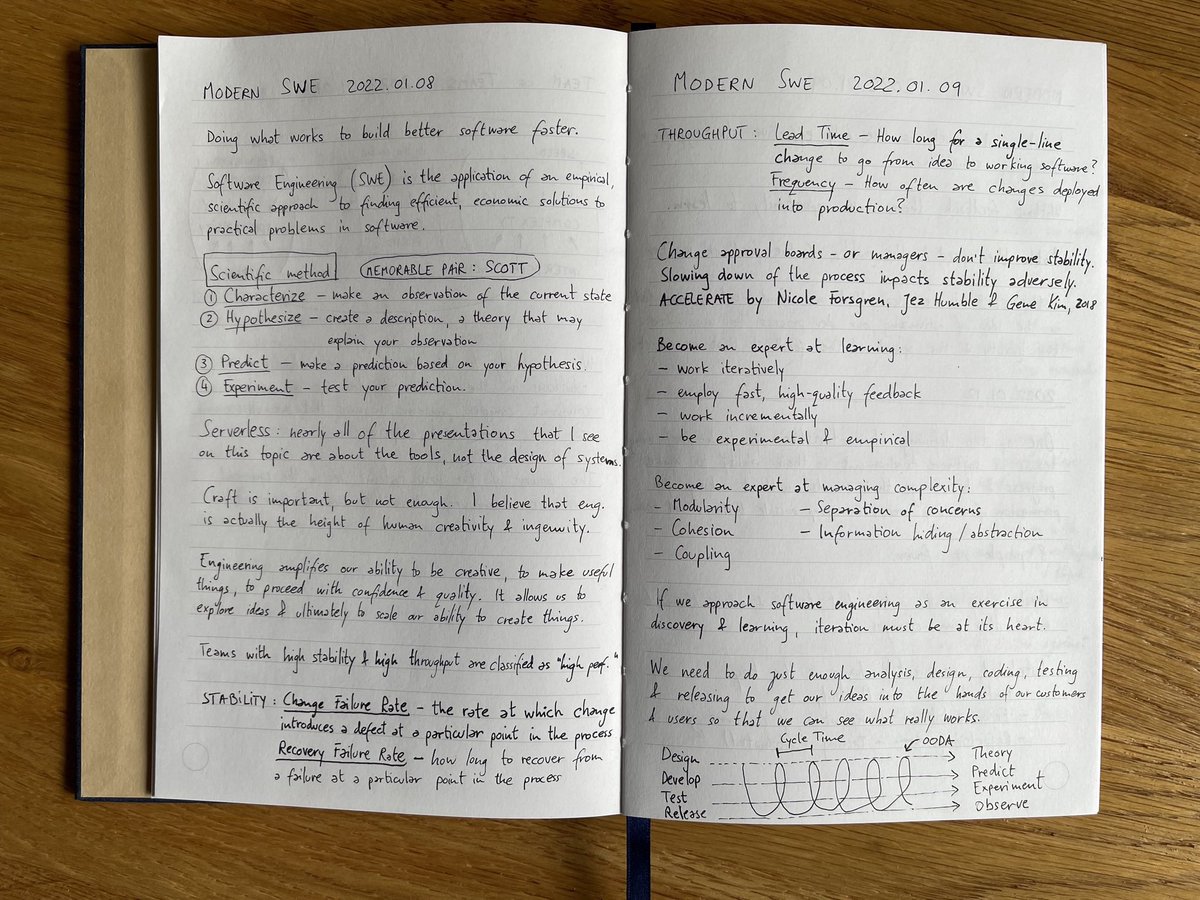 MODERN SWE 2022.01.08
Doing what works to build better software faster.
Software Engineering (SWE) is the application of an empirical,
scientific approach to finding efficient, economic solutions to
practical problems in software.
Scientific method MEMORABLE PAIR: SCOTT
① Characterize – make an observation of the current state
② Hypothesize – create a description, a theory that may
explain your observation
③ Predict – make a prediction based on your hypothesis.
④ Experiment – test your prediction.
Serverless: nearly all of the presentations that I see
on this topic are about the tools, not the design of systems.
Craft is important, but not enough. I believe that eng.
is actually the height of human creativity & ingenuity.
Engineering amplifies our ability to be creative, to make useful
things, to proceed with confidence & quality. It allows us to
explore ideas & ultimately to scale our ability to create things.
Teams with high stability & high throughput are classified as "high perf."
STABILITY: Change Failure Rate – the rate at which change
introduces a defect at a particular point in the process
Recovery Failure Rate – how long to recover from
a failure at a particular point in the process
MODERN SWE 2022.01.09
THROUGHPUT: Lead Time – How long for a single-line
change to go from idea to working software?
Frequency – How often are changes deployed
into production?
Change approval boards - or managers - don't improve stability.
Slowing down of the process impacts stability adversely.
ACCELERATE by Nicole Forsgren, Jez Humble & Gene Kim, 2018
Become an expert at learning:
– work iteratively
– employ fast, high-quality feedback
– work incrementally
– be experimental & empirical
Become an expert at managing complexity:
– Modularity – Separation of concerns
– Cohesion – Information hiding / abstraction
– Coupling
If we approach software engineering as an exercise in
discovery & learning, iteration must be at its heart.
We need to do just enough analysis, design, coding, testing
& releasing to get our ideas into the hands of our customers
& users so that we can see what really works.
Cycle Time OODA
Design Theory
Develop Predict
Test Experiment
Release Observe